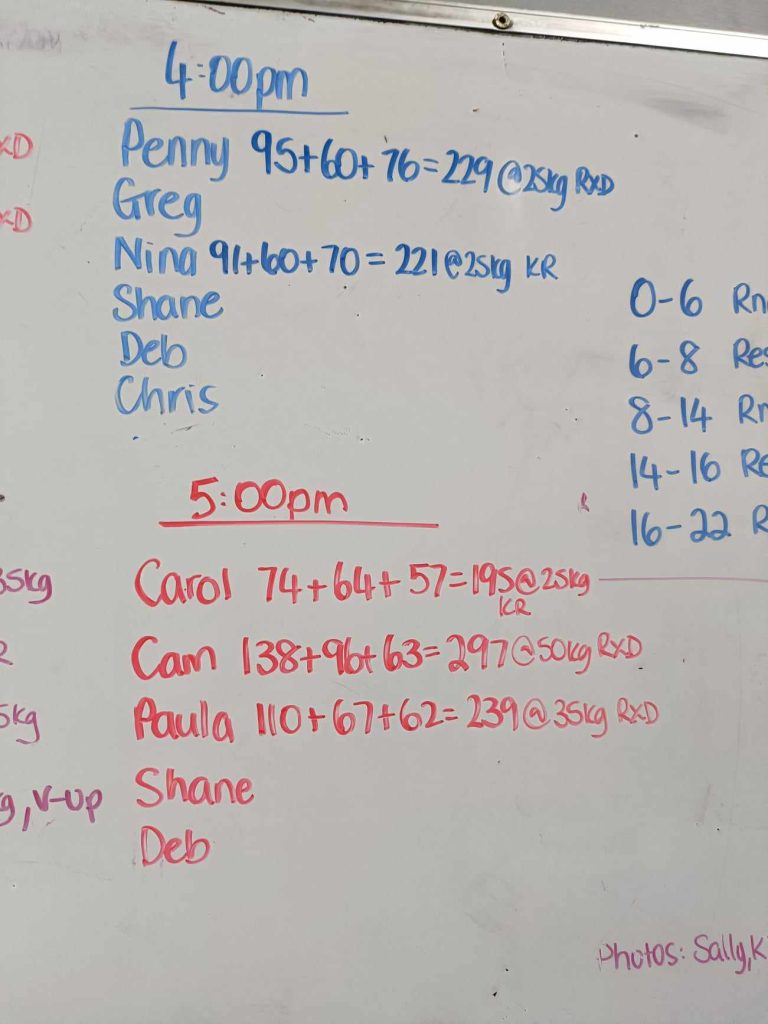 4:00pm
Penny 95+60+76=229@25kg RXD
Greg
Nina 91+60+70=221@25kg KR
Shane
Deb
Chris
0-6 Rn
6-8 Res
8-14 Rn
14-16 Re
16-22 R
5:00pm
Carol 74+64+57=195@25kg
KR
Cam 138+96+63=297@50kg RXD
Paula 110+67+62=239@35kg RXD
Shane
Deb
XD
XD
35kg
R
5kg
g, V-up
Photos: Sally, K